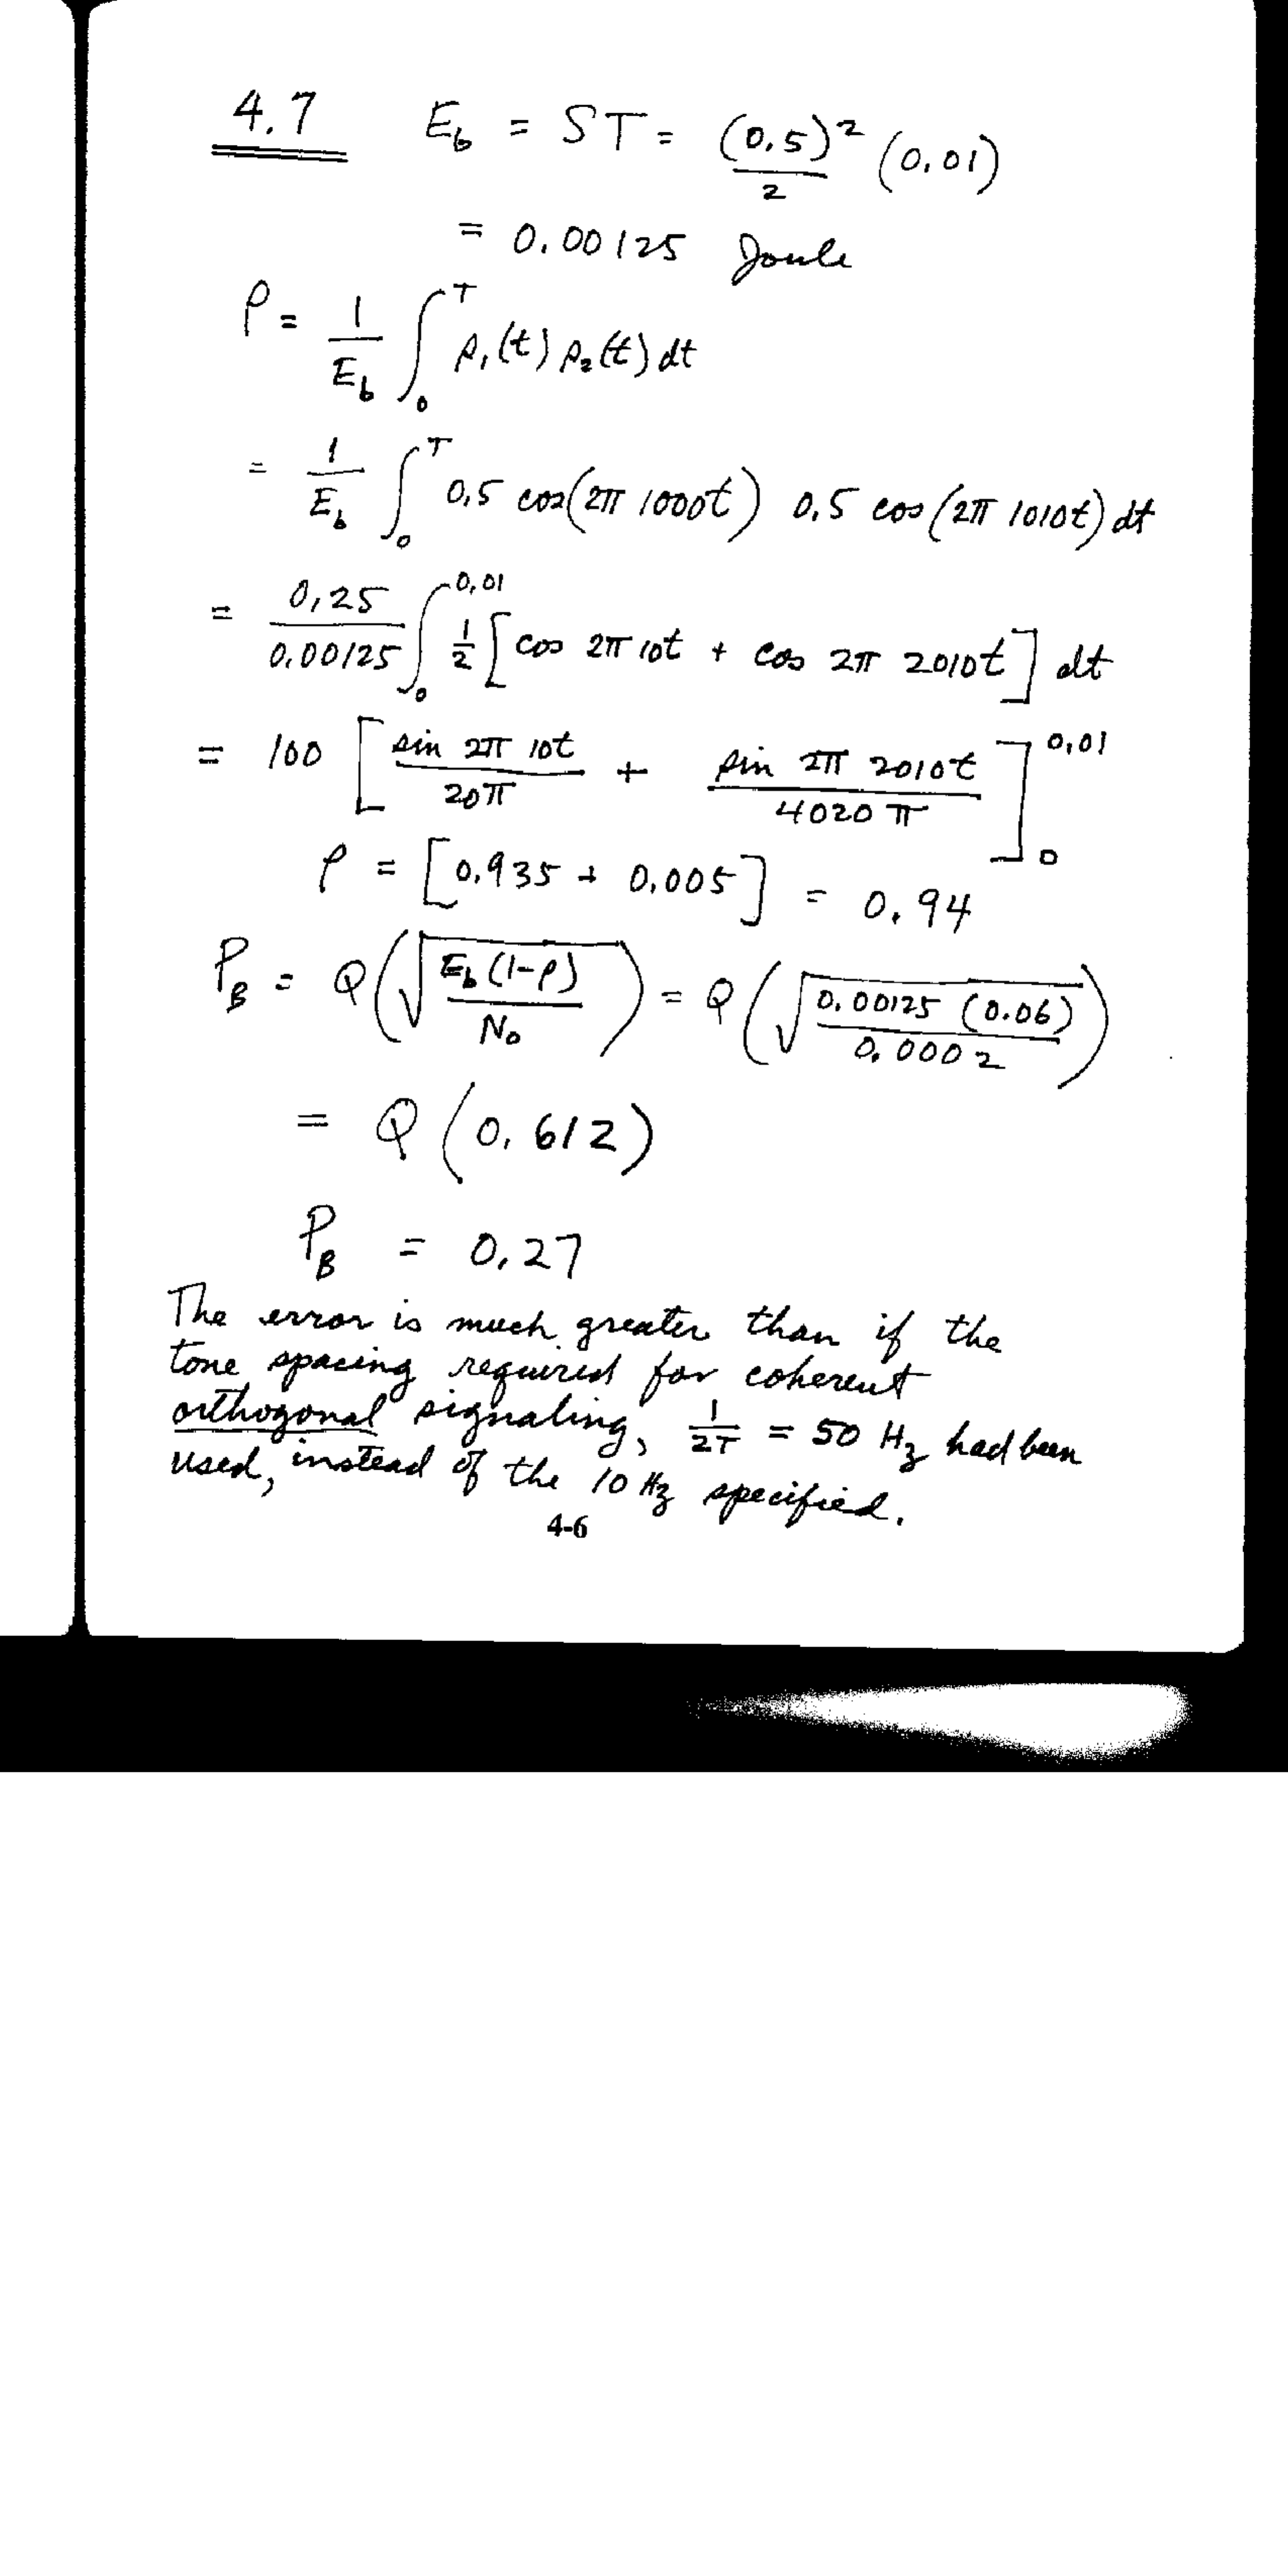 4.7 E_b = ST = (0.5)²/2 (0.01)
= 0.00125 Joule
ρ = 1/E_b ∫₀ᵀ s₁(t) s₂(t) dt
= 1/E_b ∫₀ᵀ 0.5 cos(2π 1000t) 0.5 cos(2π 1010t) dt
= 0.25/0.00125 ∫₀^0.01 1/2 [cos 2π 10t + cos 2π 2010t] dt
= 100 [sin 2π 10t / 20π + sin 2π 2010t / 4020π]₀^0.01
ρ = [0.935 + 0.005] = 0.94
P_B = Q(√(E_b(1-ρ)/N₀)) = Q(√(0.00125 (0.06)/0.0002))
= Q(0.612)
P_B = 0.27
The error is much greater than if the
tone spacing required for coherent
orthogonal signaling, 1/2T = 50 Hz had been
used, instead of the 10 Hz specified.
4-6